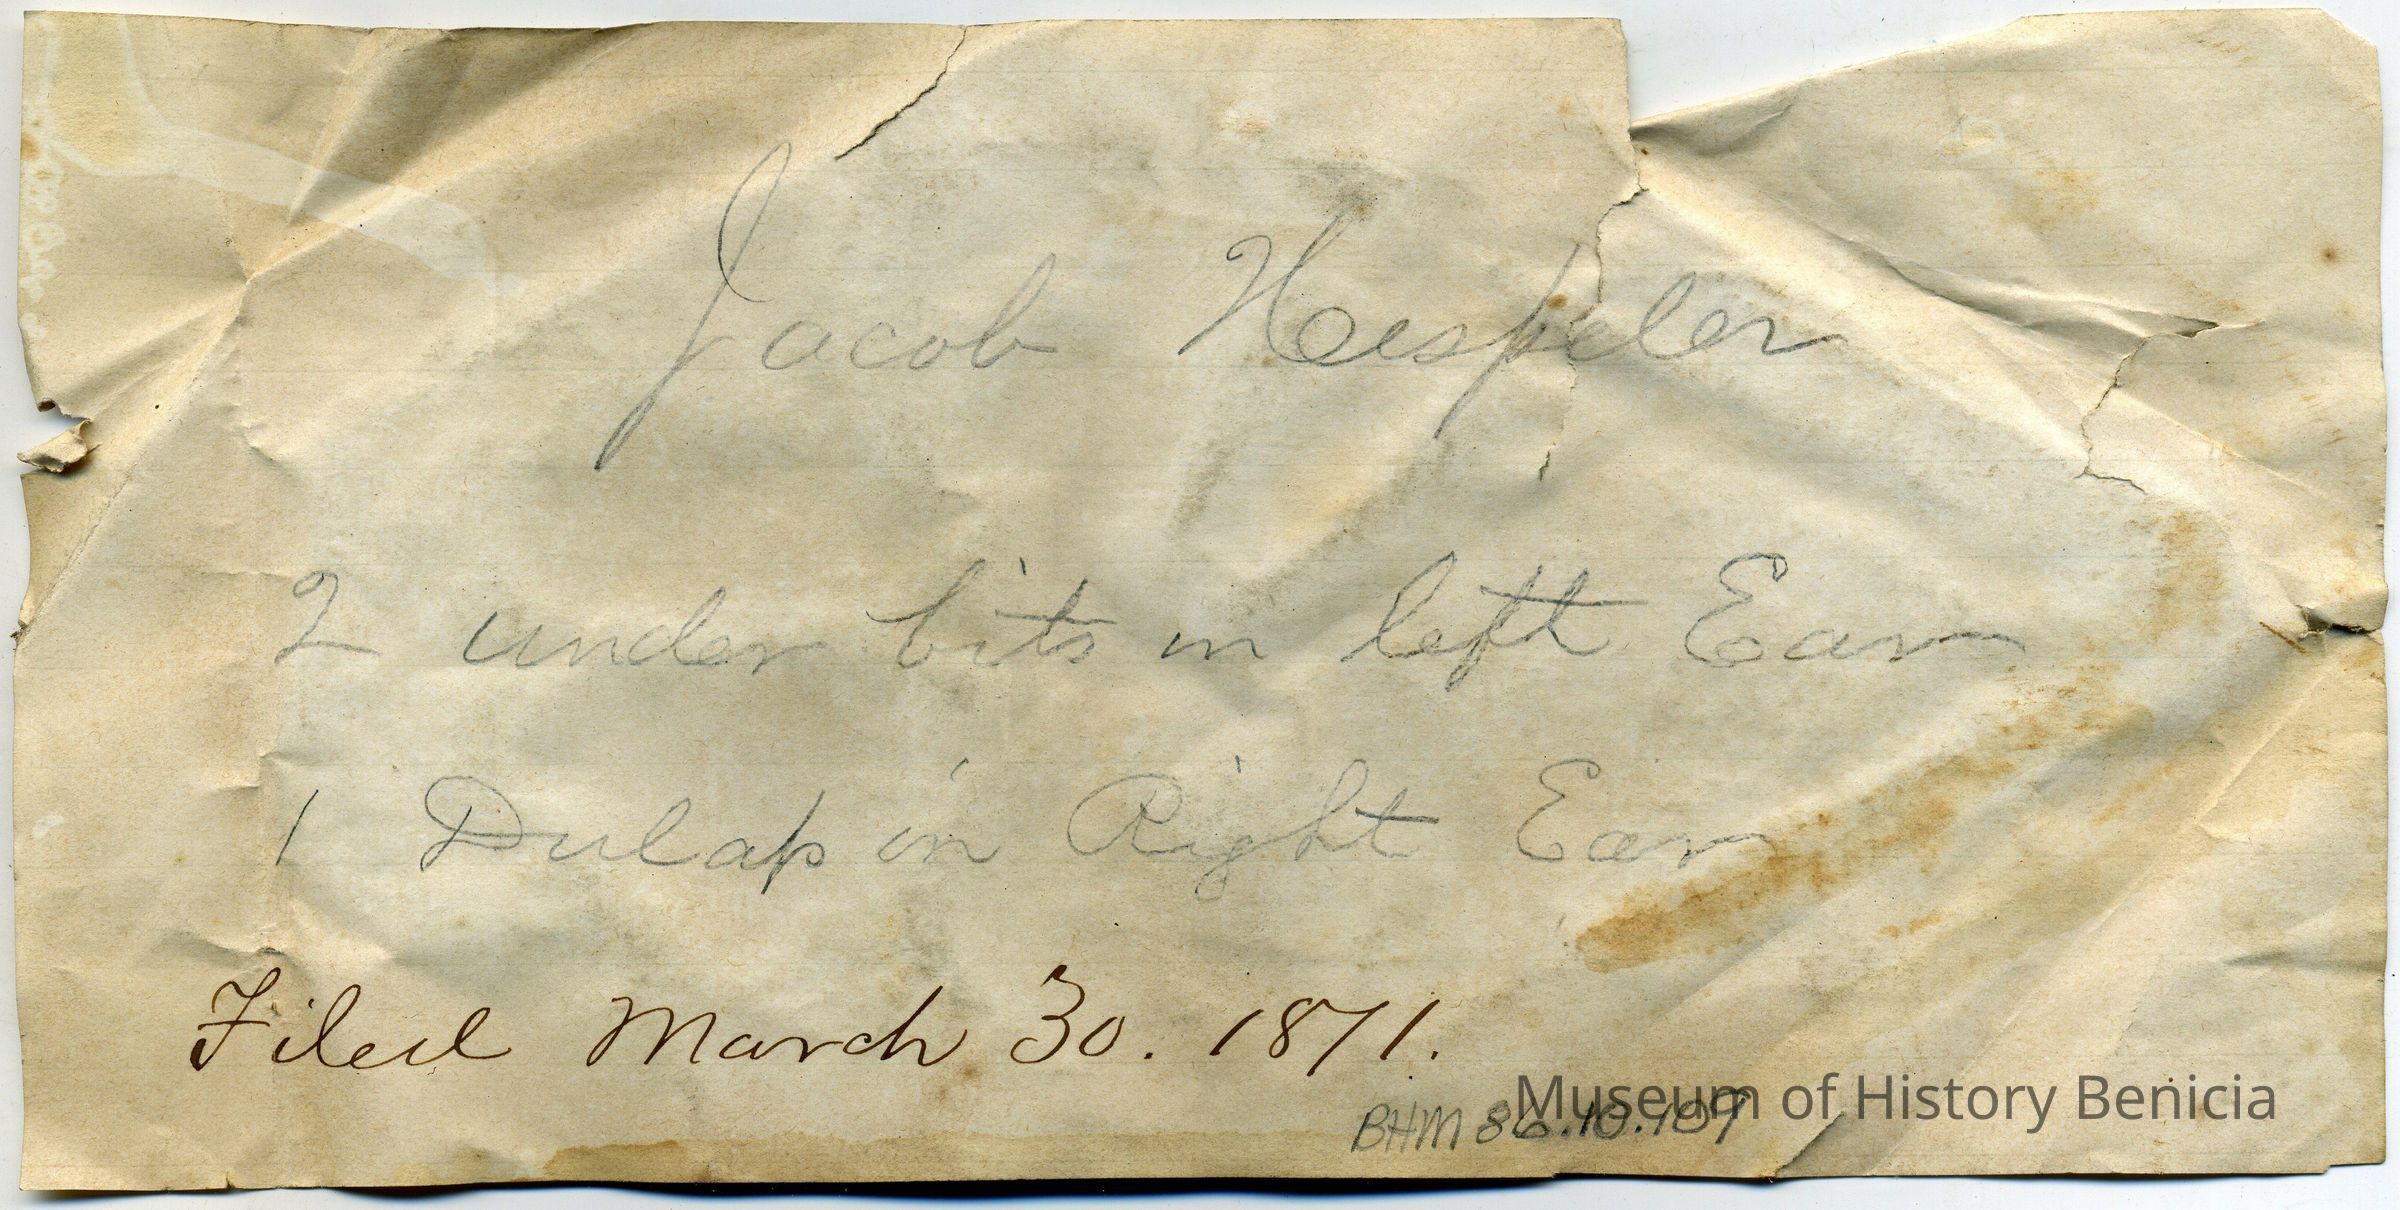 Jacob Heispeler
2 under bits in left Ear
1 Dulap in Right Ear
Filed March 30. 1871.
Museum of History Benicia
BHM 86.10.109